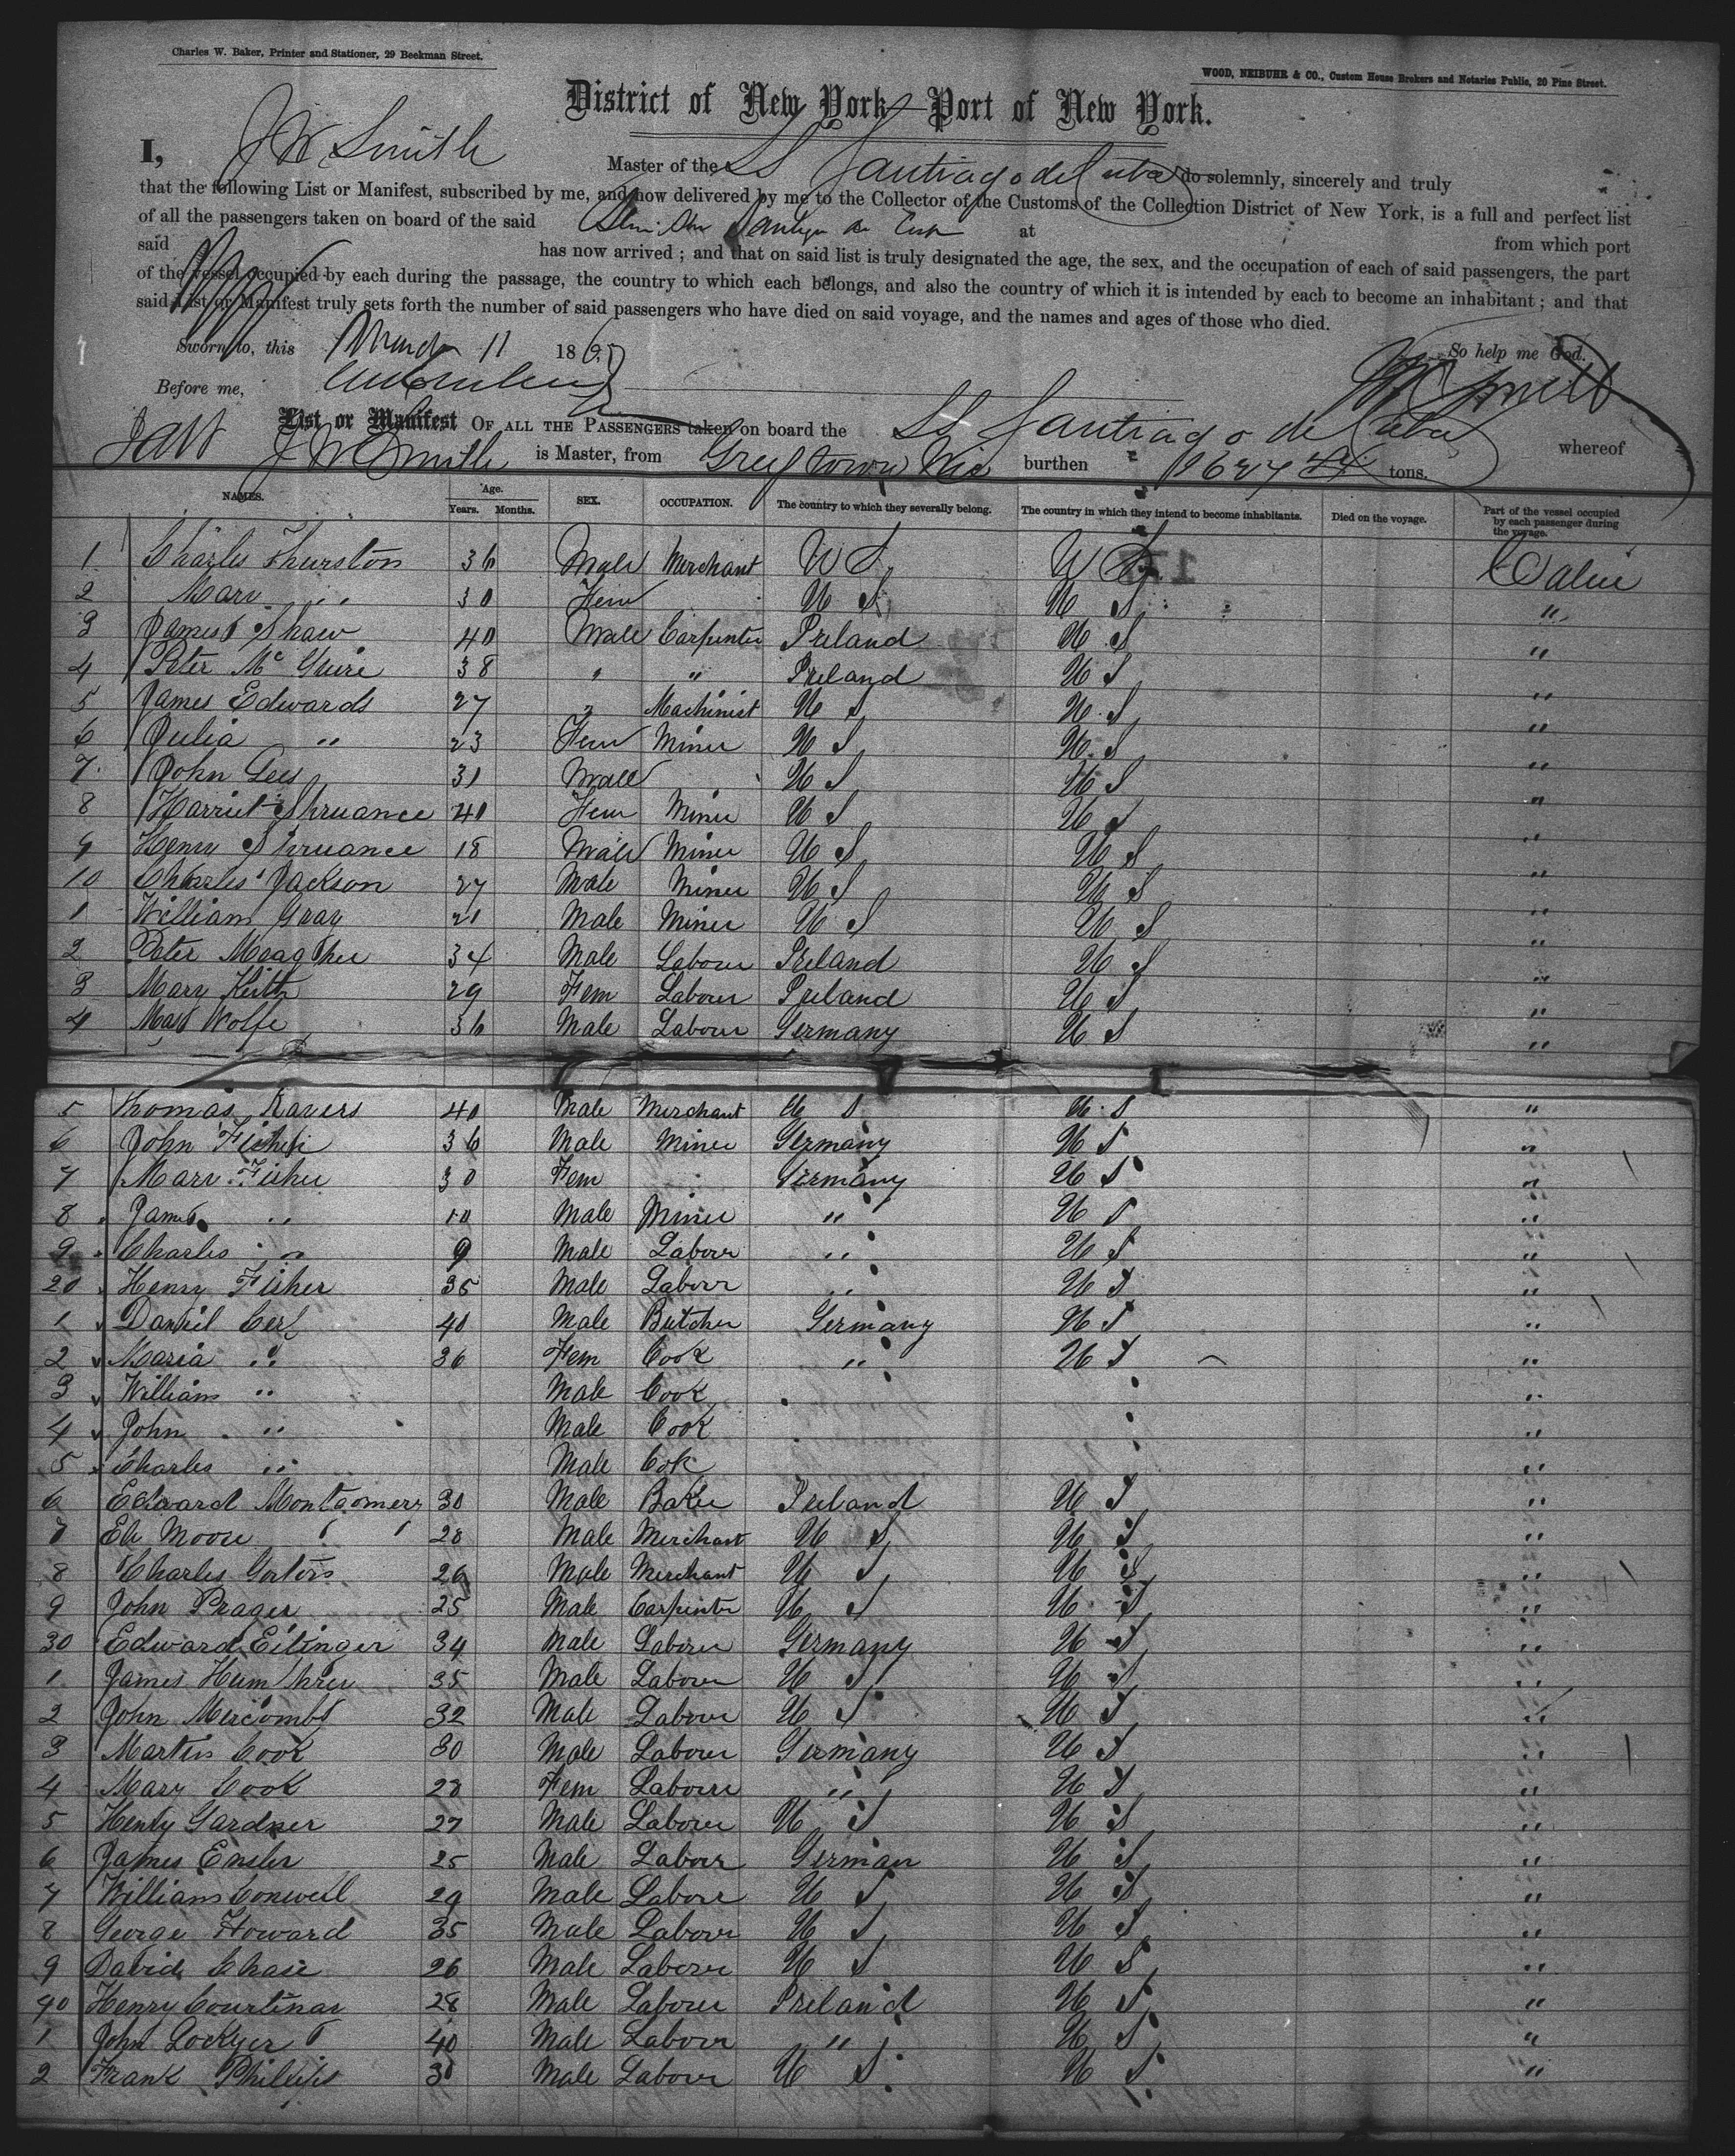 Charles W. Baker, Printer and Stationer, 29 Beekman Street.
WOOD, NEIBUHR & CO., Custom House Brokers and Notaries Public, 20 Pine Street.
District of New York—Port of New York.
I, J W Smith Master of the SS Santiago de Cuba do solemnly, sincerely and truly
that the following List or Manifest, subscribed by me, and now delivered by me to the Collector of the Customs of the Collection District of New York, is a full and perfect list
of all the passengers taken on board of the said at from which port
said has now arrived ; and that on said list is truly designated the age, the sex, and the occupation of each of said passengers, the part
of the vessel occupied by each during the passage, the country to which each belongs, and also the country of which it is intended by each to become an inhabitant ; and that
said List or Manifest truly sets forth the number of said passengers who have died on said voyage, and the names and ages of those who died.
Sworn to, this March 11 186 So help me God.
Before me, J W Smith
List or Manifest OF ALL THE PASSENGERS taken on board the SS Santiago de Cuba whereof
J W Smith is Master, from Greytown Nic burthen tons.
NAMES. Age. Years. Months. SEX. OCCUPATION. The country to which they severally belong. The country in which they intend to become inhabitants. Died on the voyage. Part of the vessel occupied by each passenger during the voyage.
1 Charles Thurston 36 Male Merchant U S U S Cabin
2 Mary " 30 Fem U S U S "
3 James Shaw 40 Male Carpenter Ireland U S "
4 Peter Mc Guire 38 " " Ireland U S "
5 James Edwards 27 " Machinist U S U S "
6 Julia " 23 Fem Miner U S U S "
7 John Lees 31 Male U S U S "
8 Harriet Spruance 40 Fem Miner U S U S "
9 Henry Spruance 18 Male Miner U S U S "
10 Charles Jackson 27 Male Miner U S U S "
1 William Gray 21 Male Miner U S U S "
2 Peter Meagher 34 Male Labour Ireland U S "
3 Mary Keith 29 Fem Labour Ireland U S "
4 Max Wolfe 36 Male Labour Germany U S "
5 Thomas Ravers 40 Male Merchant U S U S "
6 John Fisher 36 Male Miner Germany U S "
7 Mary Fisher 30 Fem Germany U S "
8 James " 10 Male Miner " U S "
9 Charles " 9 Male Labour " U S "
20 Henry Fisher 35 Male Labour " U S "
1 Daniel 40 Male Butcher Germany U S "
2 Maria " 36 Fem Cook " U S "
3 William " Male Cook "
4 John " Male Cook "
5 Charles " Male Cok "
6 Edward Montgomery 30 Male Baker Ireland U S "
7 Eli Moore 28 Male Merchant U S U S "
8 Charles Gorton 26 Male Merchant U S U S "
9 John Prager 25 Male Carpenter U S U S "
30 Edward Eilinger 34 Male Laborer Germany U S "
1 James Humphrey 35 Male Laborer U S U S "
2 John 32 Male Labour U S U S "
3 Martin Cook 30 Male Laborer Germany U S "
4 Mary Cook 28 Fem Labour " U S "
5 Henry Gardner 27 Male Laborer U S U S "
6 James Ensler 25 Male Labour German U S "
7 William Conweil 29 Male Labore U S U S "
8 George Howard 35 Male Labour U S U S "
9 David Chase 26 Male Laborer U S U S "
40 Henry Courtinay 28 Male Laborer Ireland U S "
1 John Lockyer 40 Male Labour " U S "
2 Frank Phillips 30 Male Labour U S U S "